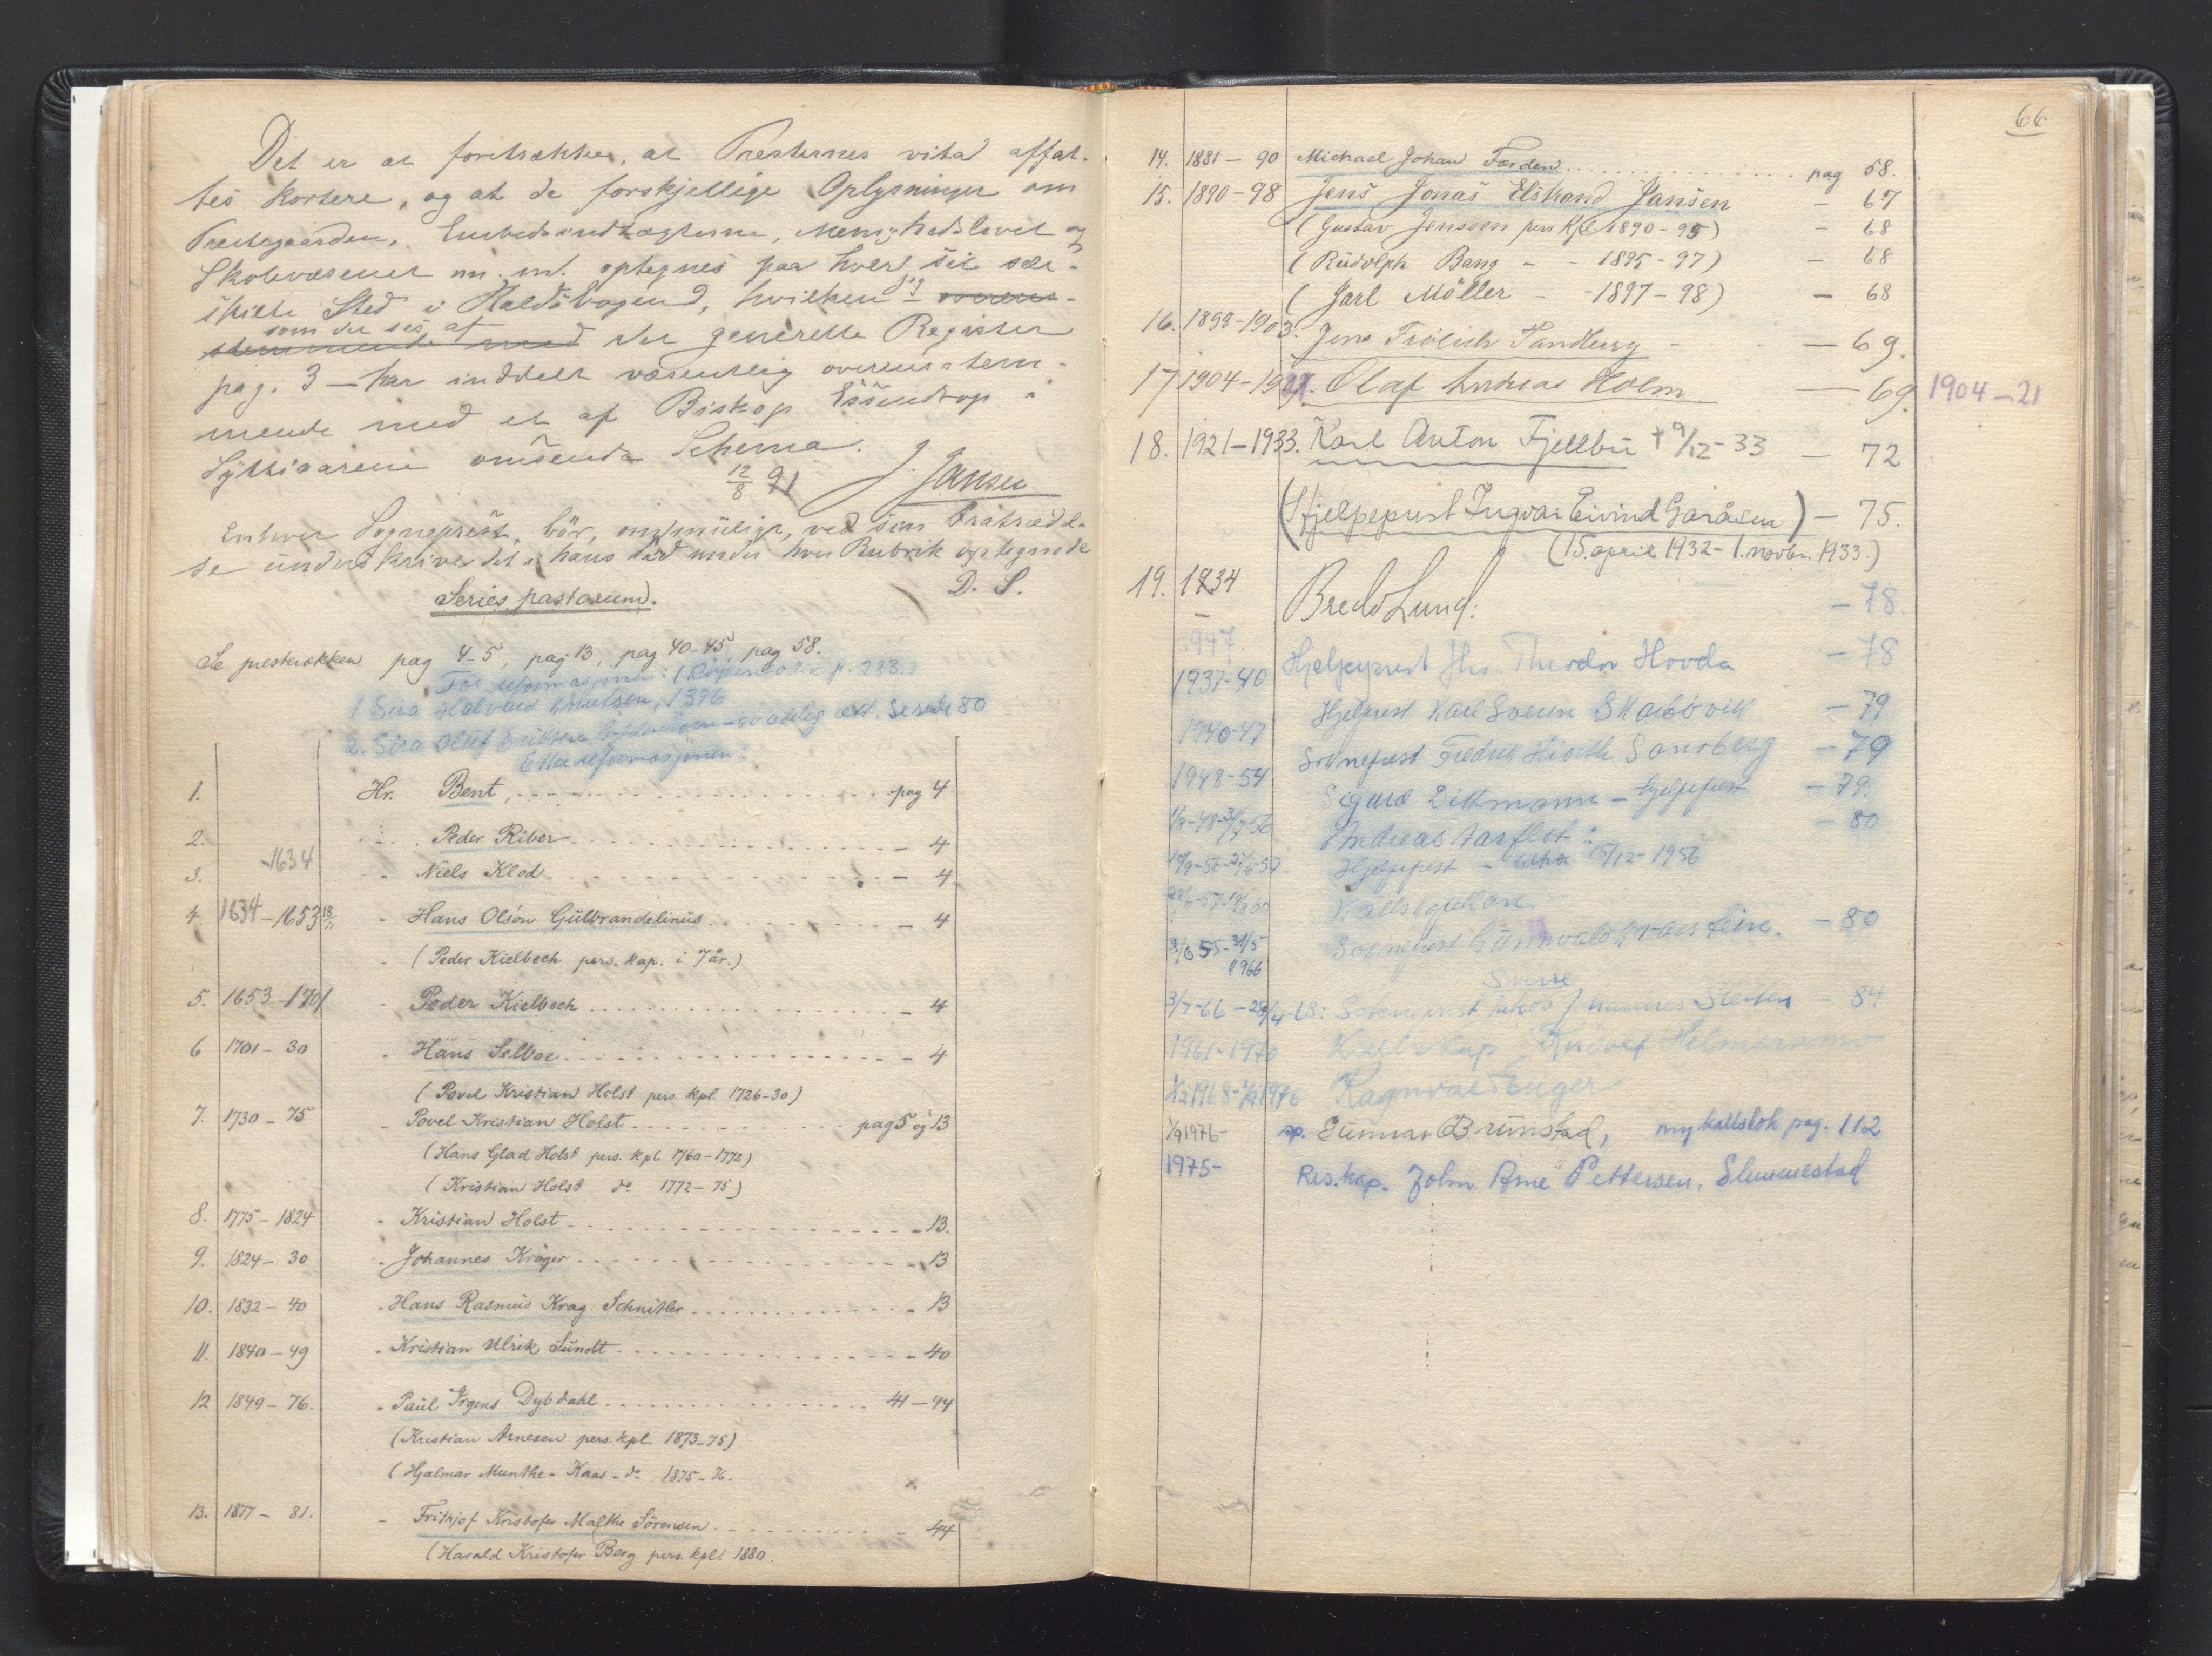 Det er at foretrække, at Præsternes vita affat-
tes kortere, og at de forskjellige Oplysninger om
Præstegaarden, Embedsindtægterne, Menighedslivet og
Skolevæsenet m. m. optegnes paa hver sit sær-
skilte Sted i Kaldsbogen, hvilken jeg overens-
som det sees af
stemmende med det generelle Register
pag. 3 – har inddelt væsentlig overensstem-
mende med et af Biskop Essendrop i
Syttiaarene omsendt Schema.
12/8 91 J. Jansen
Enhver Sogneprest bör, om muligt, ved sin Fratrædel-
se underskrive det i hans tid under hver Rubrik optegnede
D. S.
Series pastorum.
Se presterækken pag 4-5, pag 13, pag 40-45, pag 58.
Før reformasjonen: p. 283.
1 Sira Halvard Knutsen, 1396
2. Sira Oluf Eriksen av adelig ætt. Se side 80
Etter reformasjonen:
1. Hr. Bent, pag 4
2. Peder Riber – 4
3. -1634 - Niels Klod – 4
4. 1634-1653 18/11 - Hans Olsön Gulbrandelinus – 4
(Peder Kielbech pers. kap. i 7 år.)
5. 1653-1701 - Peder Kielbech – 4
6 1701-30 - Hans Selboe – 4
(Povel Kristian Holst pers. kpl. 1726-30)
7. 1730-75 - Povel Kristian Holst pag 5 og 13
(Hans Glad Holst pers. kpl 1760-1772)
(Kristian Holst do 1772-75)
8. 1775-1824 - Kristian Holst – 13.
9. 1824-30 - Johannes Kröger – 13
10. 1832-40 - Hans Rasmus Krag Schnitler – 13
11. 1840-49 - Kristian Ulrik Sundt – 40
12 1849-76. - Paul Irgens Dybdahl 41-44
(Kristian Arnesen pers. kpl. 1873-75)
(Hjalmar Munthe-Kaas - do 1875-76.
13. 1877-81. - Frithjof Kristofer Malthe Sörensen – 44
(Harald Kristofer Berg pers. kpl. 1880.
66
14. 1881-90 Michael Johan Færden pag 58.
15. 1890-98 Jens Jonas Elstrand Jansen – 67
(Gustav Jensen pers Kpl 1890-95) – 68
(Rudolph Bang - - 1895-97) – 68
(Jarl Möller - - 1897-98) – 68
16. 1899-1903. Jens Frölich Tandberg – 69.
17 1904-1921. Olaf Andreas Holm – 69. 1904-21
18. 1921-1933. Karl Anton Fjellbu † 9/12-33 – 72
(Hjelpeprest Ingvar Eivind Garåsen) – 75.
(15. april 1932 - 1. novbr. 1933.)
19. 1934 Bredo Lund. – 78.
–
1947.
1937-40 Hjelpeprest Theodor Hovda – 78
1940-47 Hjelpeprest Karl Sverre Skaibövik – 79
1948-54 Sokneprest Fredrik Hiorth Sandberg – 79
1/8-48-31/7-56 Sigurd Dittmann - hjelpeprest – 79.
Andreas Aarflot: – 80
Hjelpeprest - 15/12-1956
Kallskapellan.
3/6 55-31/5 1966 Sokneprest Gunnvald Kvarstein. – 80
Sverre
3/7-66 – 29/4-68: Sokneprest Jakob Johannes Sletten – 84
1961-1970 Kallskap Rudolf
1/12 1968-1/9 1976 Ragnvald Enger
1/9 1976- sp. Gunnar Brunstad, ny kallsbok pag. 112
1975- Res. kap. John Arne Pettersen, Slemmestad